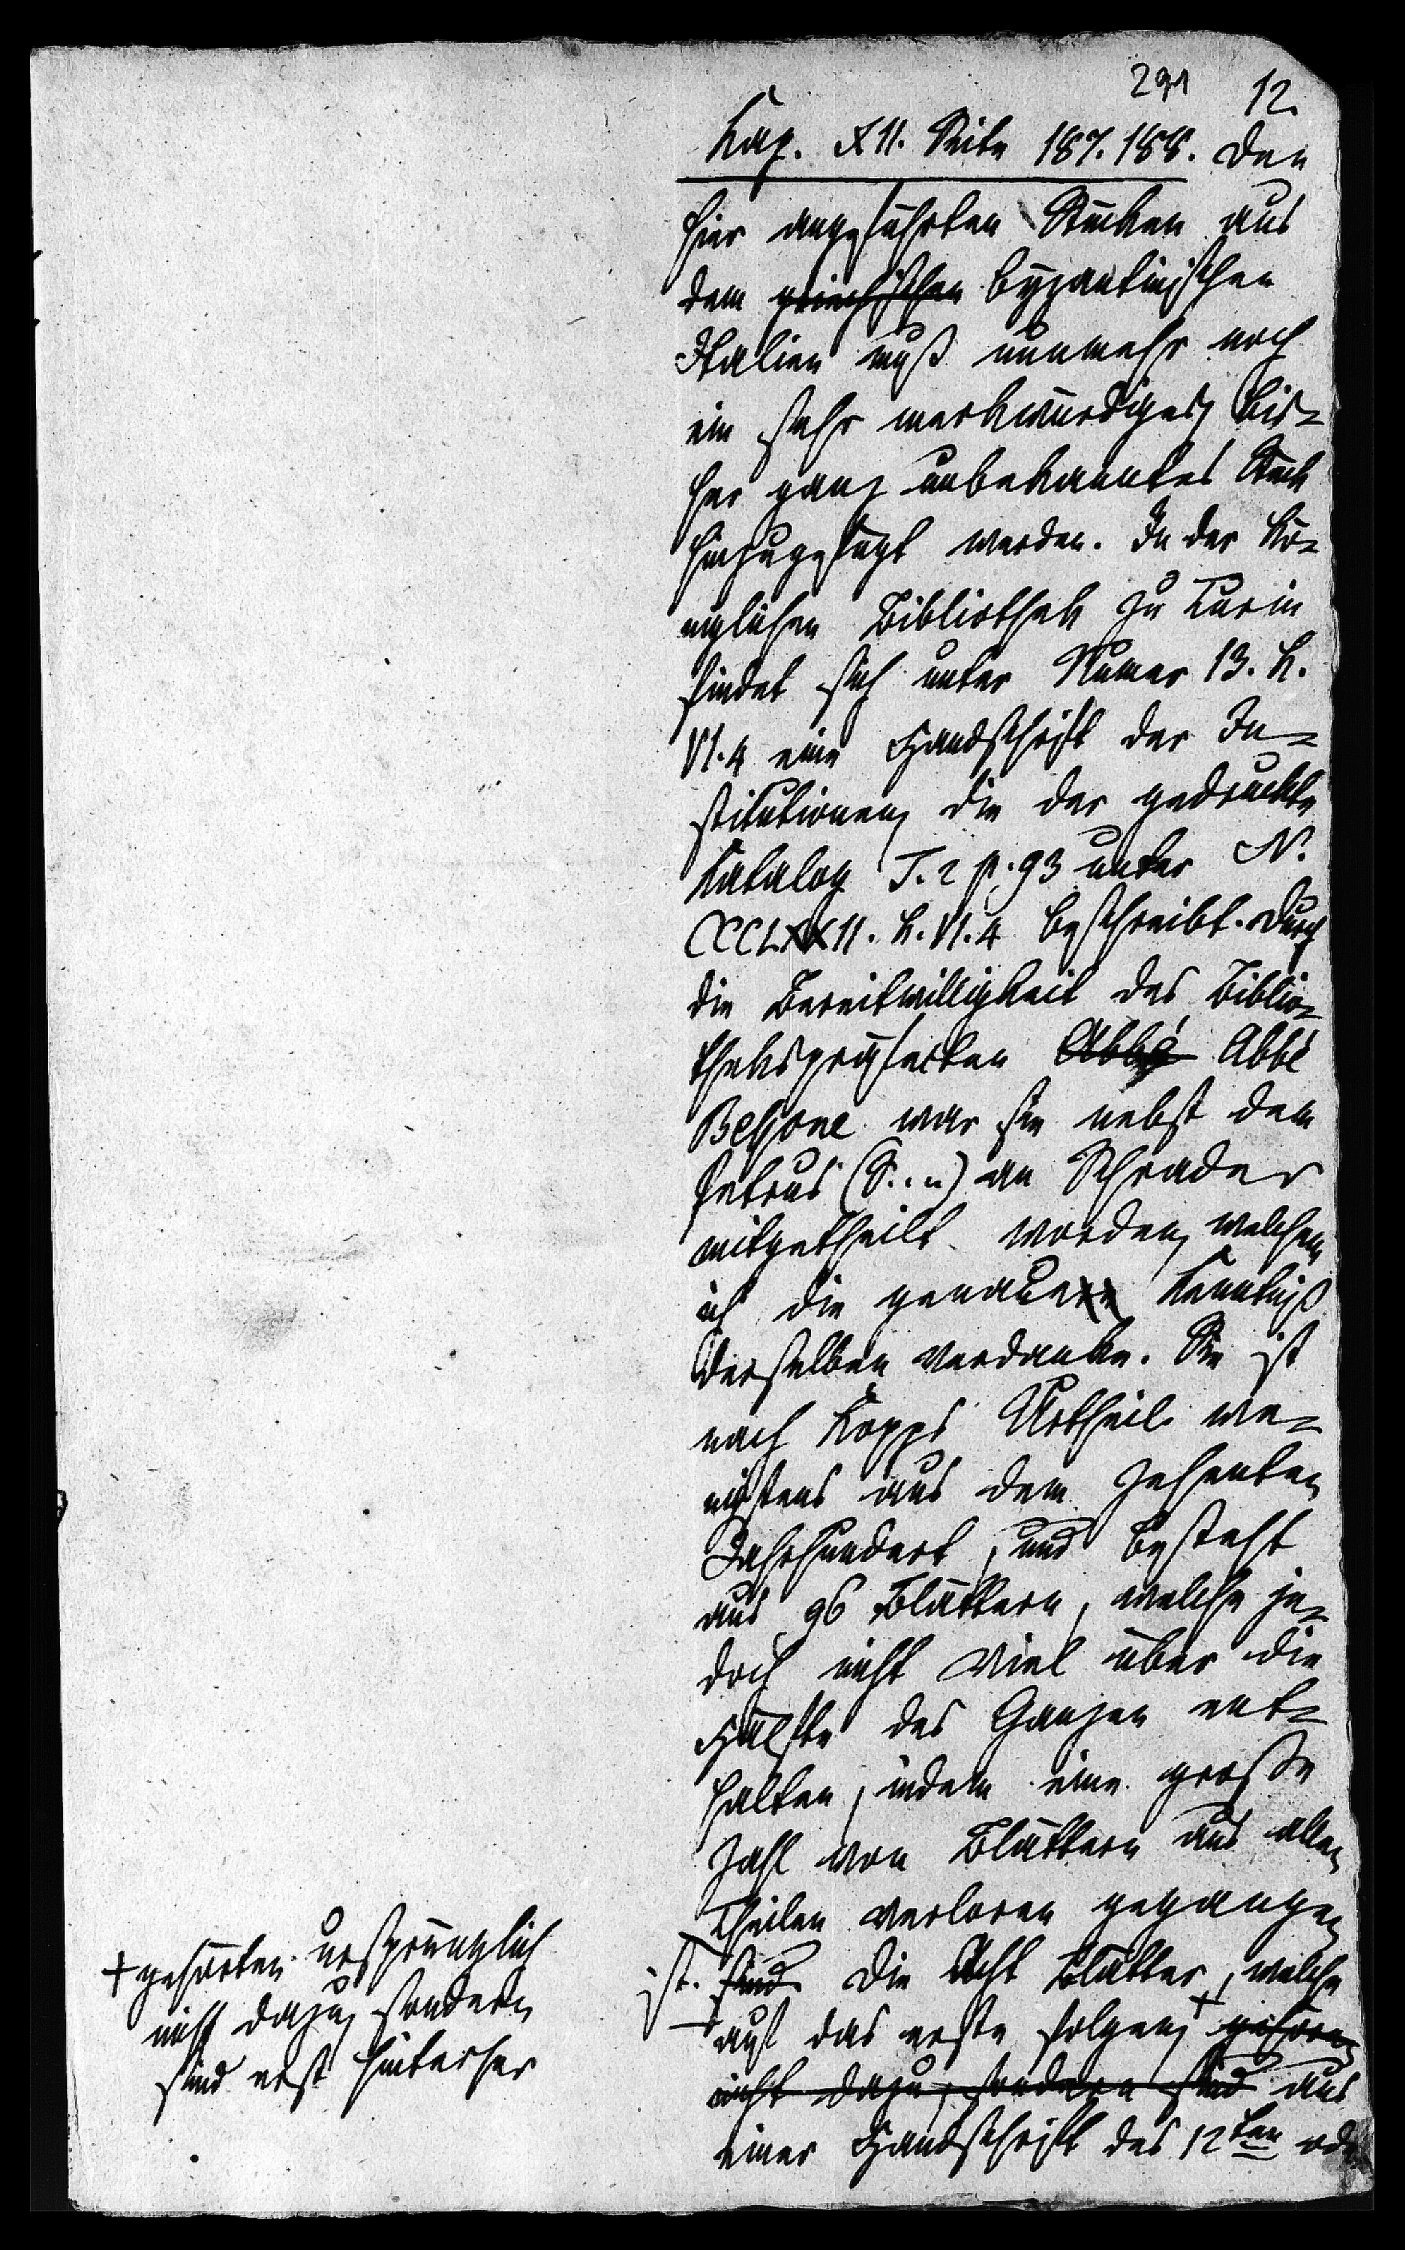 291 12.
Kap. XII. Seite 187. 188. Den
hier angeführten Stücken aus
dem griechischen byzantinischen
Italien muß nunmehr noch
ein sehr merkwürdiges, bis-
her ganz unbekanntes Stück
hinzugefügt werden. In der Kö-
niglichen Bibliothek zu Turin
findet sich unter Numer 13. h.
VI. 4 eine Handschrift der In-
stitutionen, die der gedruckte
Katalog T. 2 p. 93 unter N.
CCCLXXII. h. VI. 4 beschreibt. Durch
die Bereitwilligkeit des Biblio-
thekspräfecten Abbé Abbé
Bessone war sie nebst dem
Petrus (S. ..) an Schrader
mitgetheilt worden, welchem
ich die genauere Kenntniß
derselben verdanke. Sie ist
nach Kopps Urtheil we-
nigstens aus dem zehenten
Jahrhundert, und besteht
aus 96 Blättern, welche je-
doch nicht viel über die
Hälfte des Ganzen ent-
halten, indem eine große
Zahl von Blättern aus allen
Theilen verloren gegangen
ist. sind. Die Acht Blätter, welche
auf das erste folgen, + gehören
nicht dazu, sondern sind aus
einer Handschrift des 12ten oder
+ gehörten ursprünglich
nicht dazu, sondern
sind erst hinterher